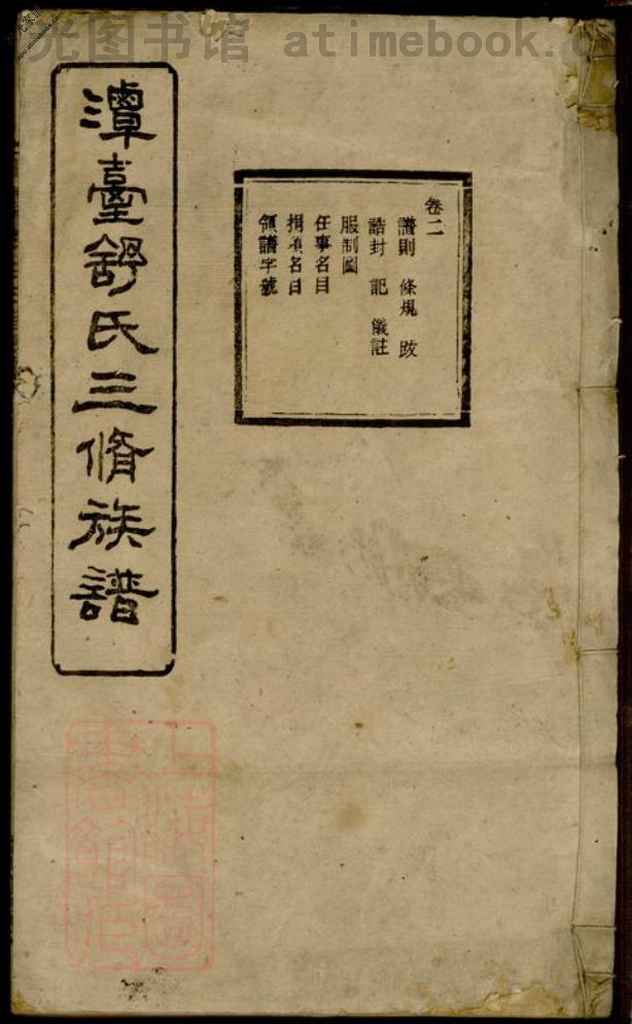 光图书馆 atimebook.c
潭臺舒氏三脩族譜
卷二
譜則 條規 跋
誥封 記 儀註
服制圖
任事名目
捐項名目
領譜字號